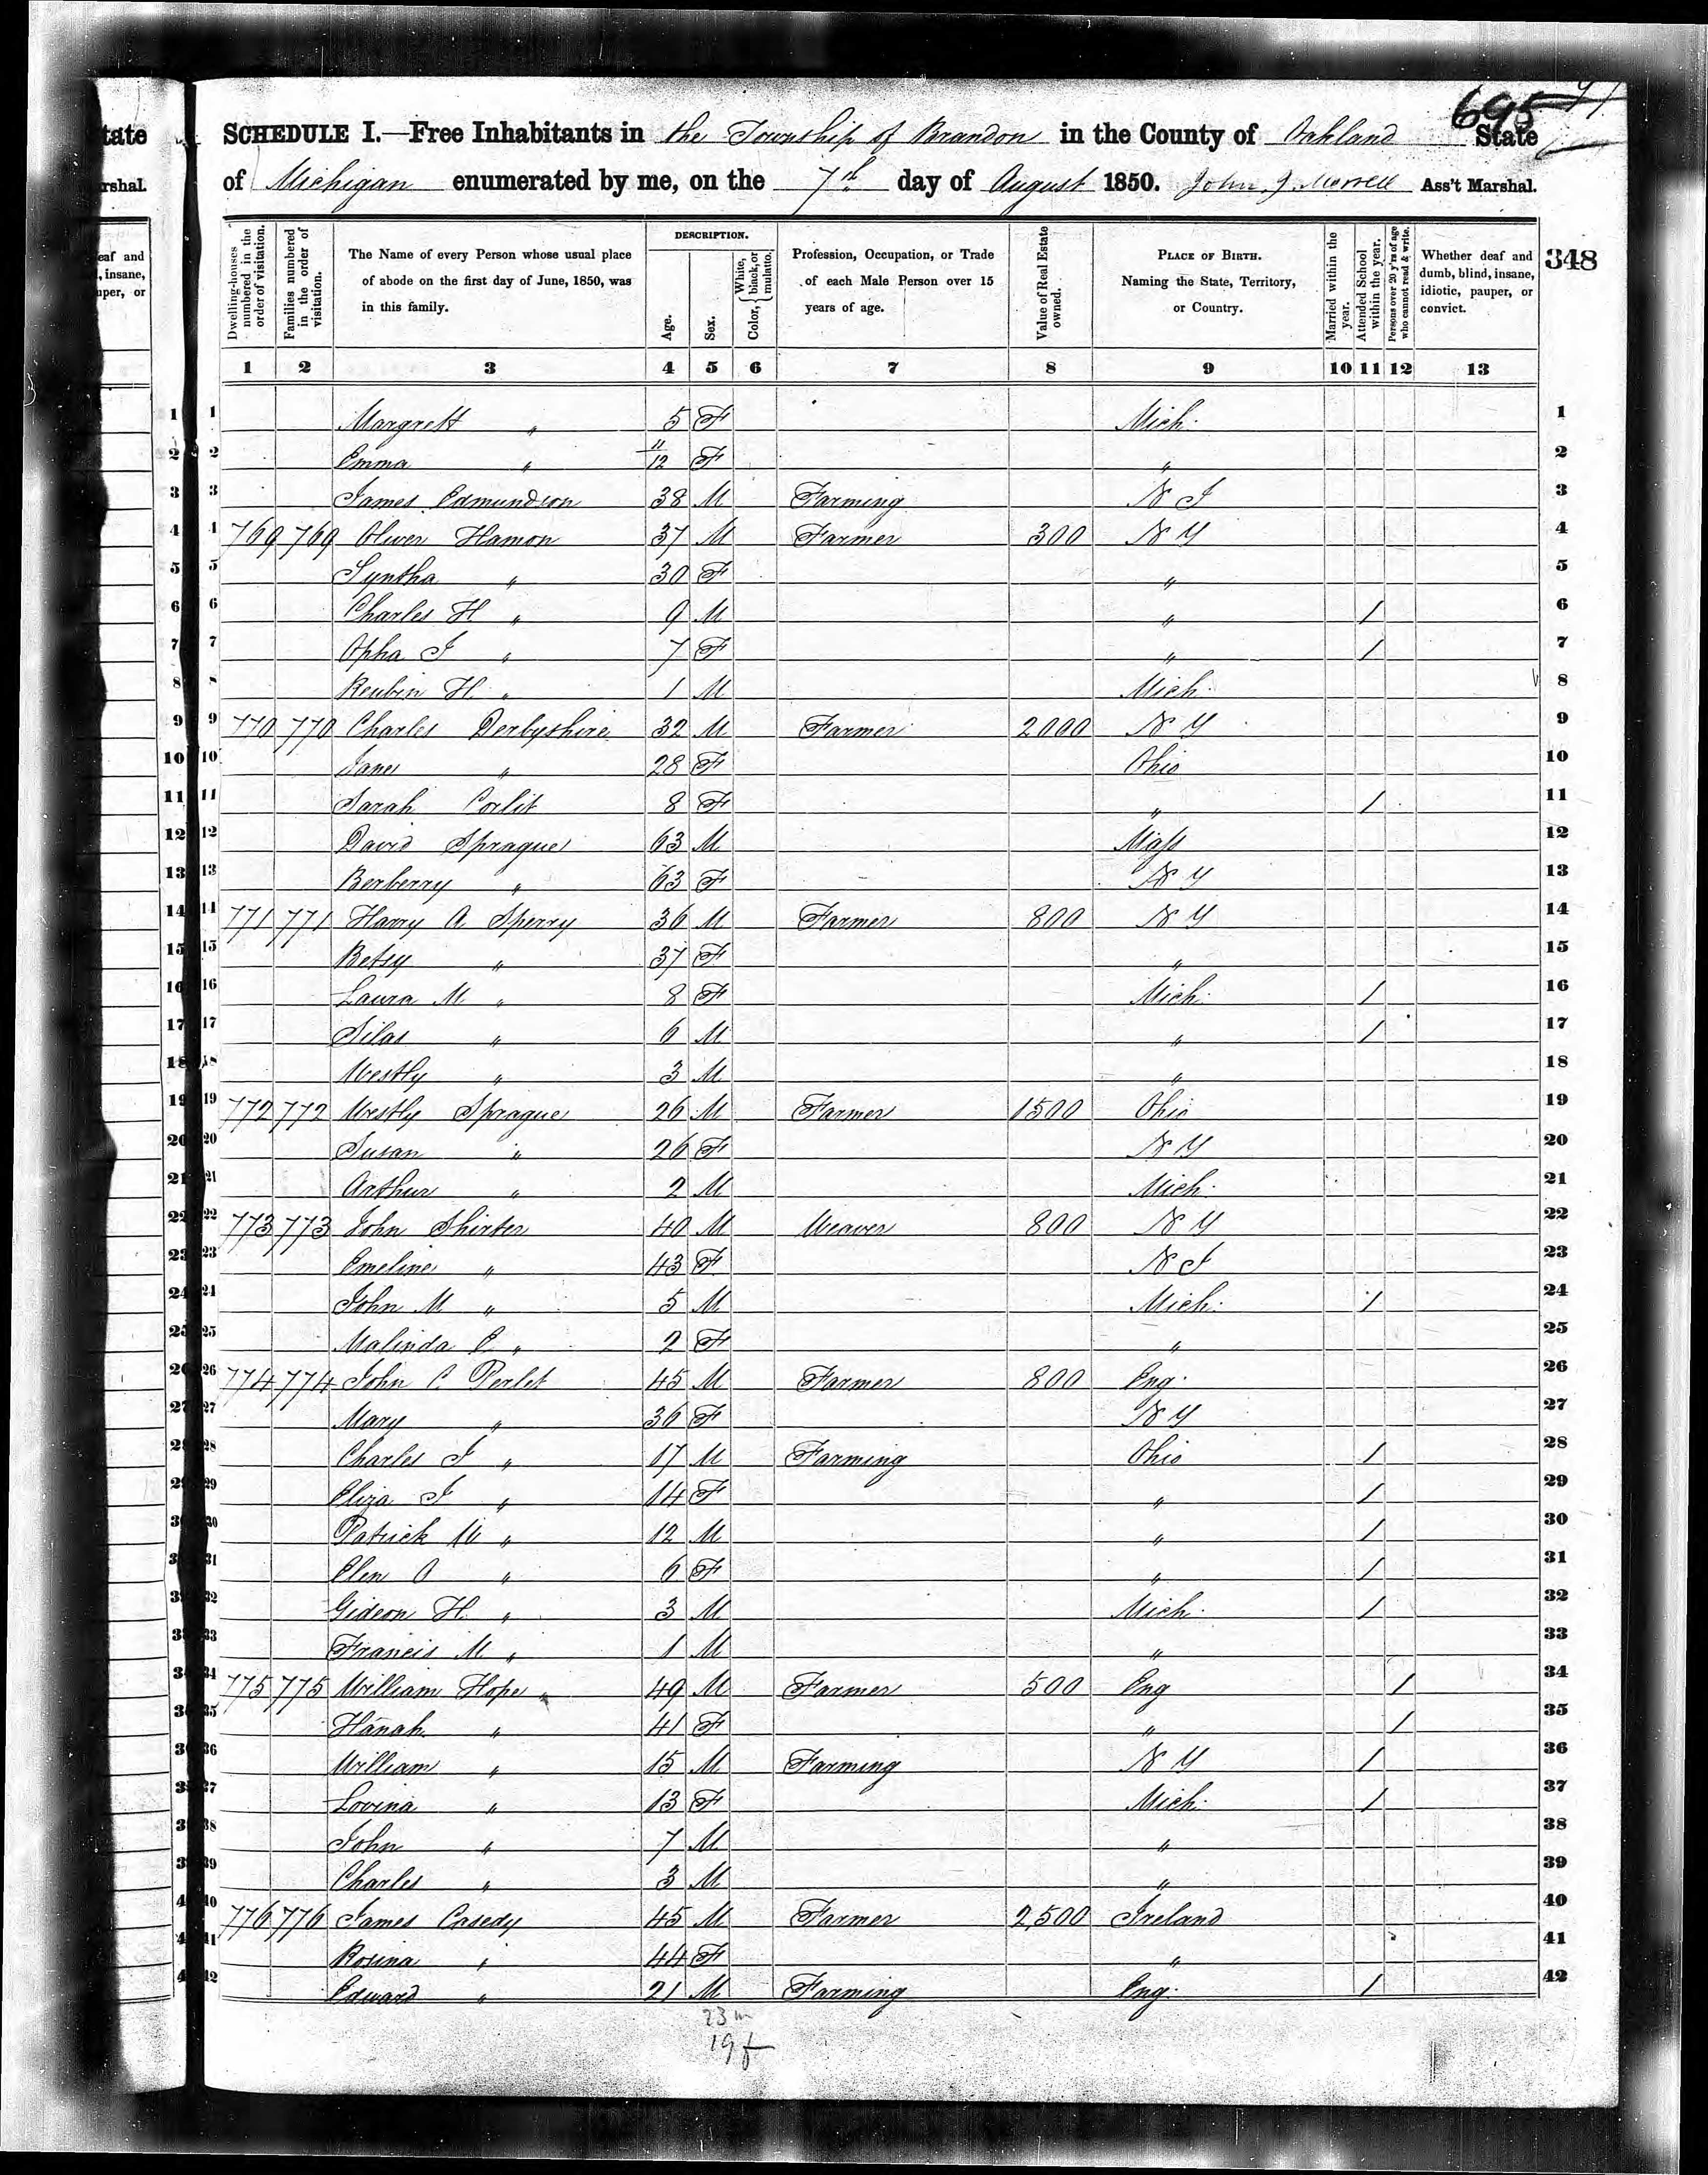 695 71
SCHEDULE I.—Free Inhabitants in the Township of Brandon in the County of Oakland State
of Michigan enumerated by me, on the 7th day of August 1850. John J. Morrell Ass't Marshal.
348
Dwelling-houses numbered in the order of visitation. Families numbered in the order of visitation. The Name of every Person whose usual place of abode on the first day of June, 1850, was in this family. DESCRIPTION. Age. Sex. Color, { White, black, or mulatto. Profession, Occupation, or Trade of each Male Person over 15 years of age. Value of Real Estate owned. PLACE OF BIRTH. Naming the State, Territory, or Country. Married within the year. Attended School within the year. Persons over 20 y'rs of age who cannot read & write. Whether deaf and dumb, blind, insane, idiotic, pauper, or convict.
1 2 3 4 5 6 7 8 9 10 11 12 13
1 Margrett " 5 F Mich. 1
2 Emma " 11/12 F " 2
3 James Edmundson 38 M Farming N J 3
4 769 769 Oliver Hamon 37 M Farmer 300 N Y 4
5 Syntha " 30 F " 5
6 Charles H " 9 M " / 6
7 Opha J " 7 F " / 7
8 Reubin H. " 1 M Mich. 8
9 770 770 Charles Derbyshire 32 M Farmer 2000 N Y 9
10 Jane " 28 F Ohio 10
11 Sarah Corlit 8 F " / 11
12 David Sprague 63 M Mass 12
13 Berberry " 63 F N Y 13
14 771 771 Harry A. Sperry 36 M Farmer 800 N Y 14
15 Betsy " 37 F " 15
16 Laura M " 8 F Mich. / 16
17 Silas " 6 M " / 17
18 Westly " 3 M " 18
19 772 772 Westly Sprague 26 M Farmer 1500 Ohio 19
20 Susan " 26 F N Y 20
21 Arthur " 2 M Mich. 21
22 773 773 John Shirter 40 M Weaver 800 N Y 22
23 Emeline " 43 F N J 23
24 John M " 5 M Mich. / 24
25 Malinda E. " 2 F " 25
26 774 774 John C. Perlet 45 M Farmer 800 Eng. 26
27 Mary " 36 F N Y 27
28 Charles J " 17 M Farming Ohio / 28
29 Eliza J " 14 F " / 29
30 Patrick W " 12 M " / 30
31 Elen O " 6 F " / 31
32 Gideon H. " 3 M Mich. / 32
33 Francis M " 1 M " 33
34 775 775 William Hope " 49 M Farmer 500 Eng / 34
35 Hanah " 41 F " / 35
36 William " 15 M Farming N Y / 36
37 Lovina " 13 F Mich. / 37
38 John " 7 M " 38
39 Charles " 3 M " 39
40 776 776 James Casedy 45 M Farmer 2,500 Ireland 40
41 Rosina " 44 F " 41
42 Edward " 21 M Farming Eng. / 42
23 m
19 f